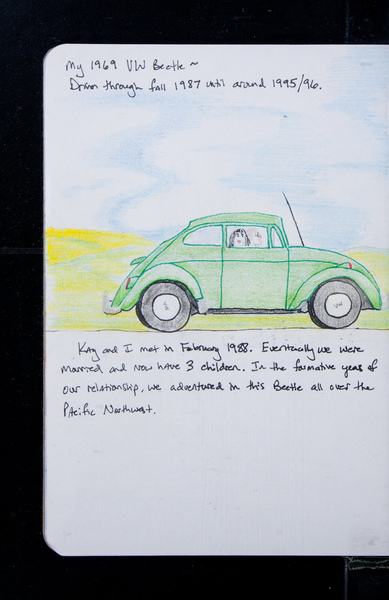 My 1969 VW Beetle ~
Driven through fall 1987 until around 1995/96.
Kay and I met in February 1988. Eventually we were
married and now have 3 children. In the formative years of
our relationship, we adventured in this Beetle all over the
Pacific Northwest.